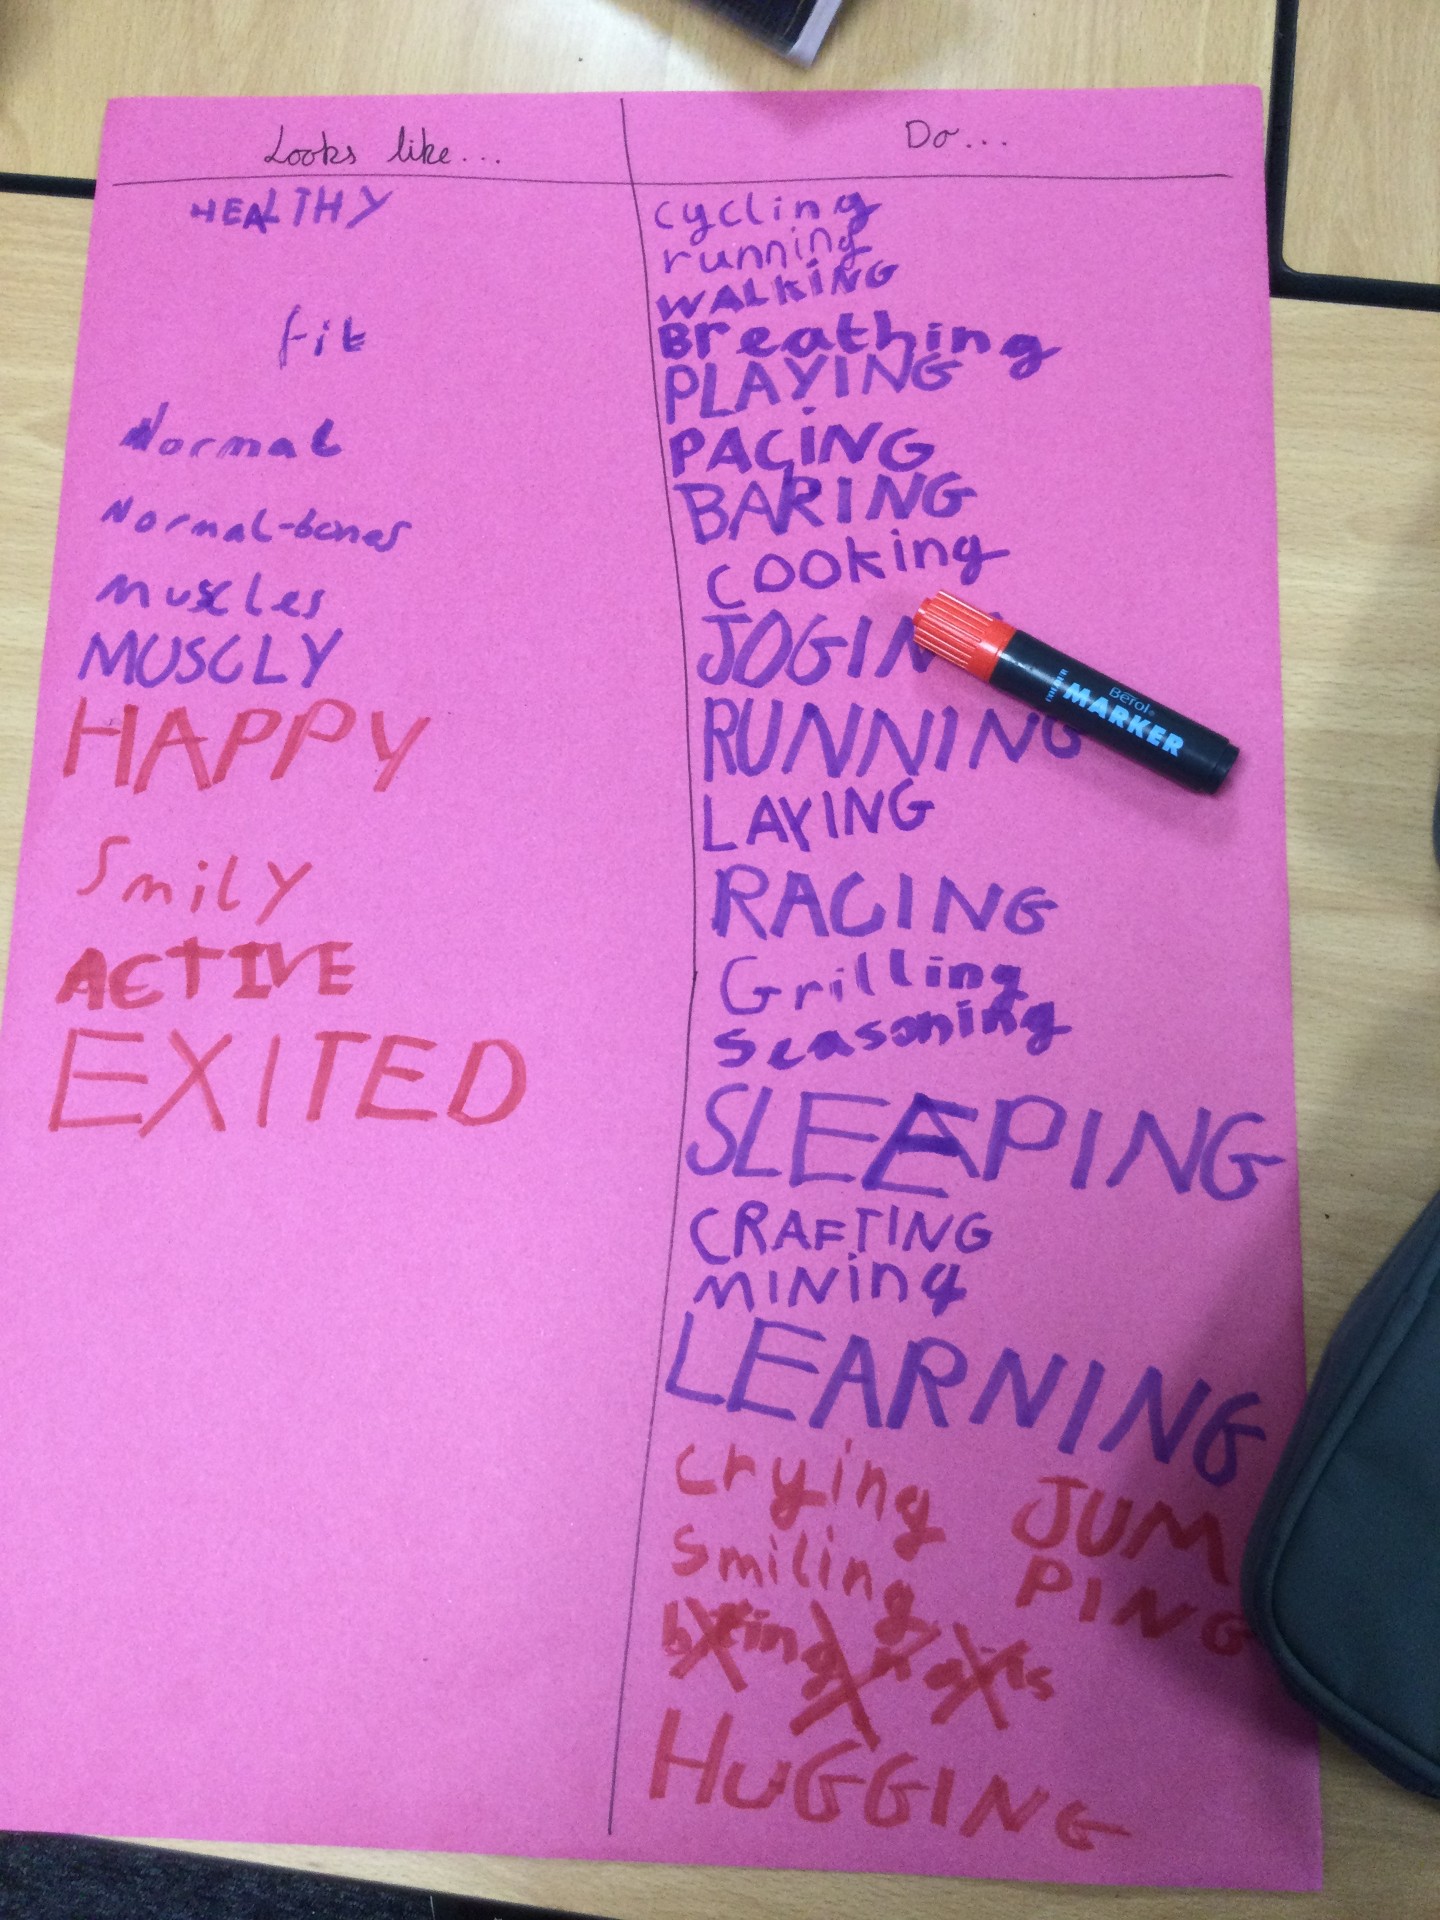 Looks like...
HEALTHY
fit
Normal
Normal-bones
muscles
MUSCLY
HAPPY
Smily
ACTIVE
EXITED
Do...
cycling
running
WALKiNG
Breathing
PLAYING
PACiNG
BARING
cooking
JOGIN
RUNNING
LAYING
RACING
Grilling
seasoning
SLEEPING
CRAFTING
MINing
LEARNING
crying
smiling
JUM
PING
HUGGING
BeTol
MARKER